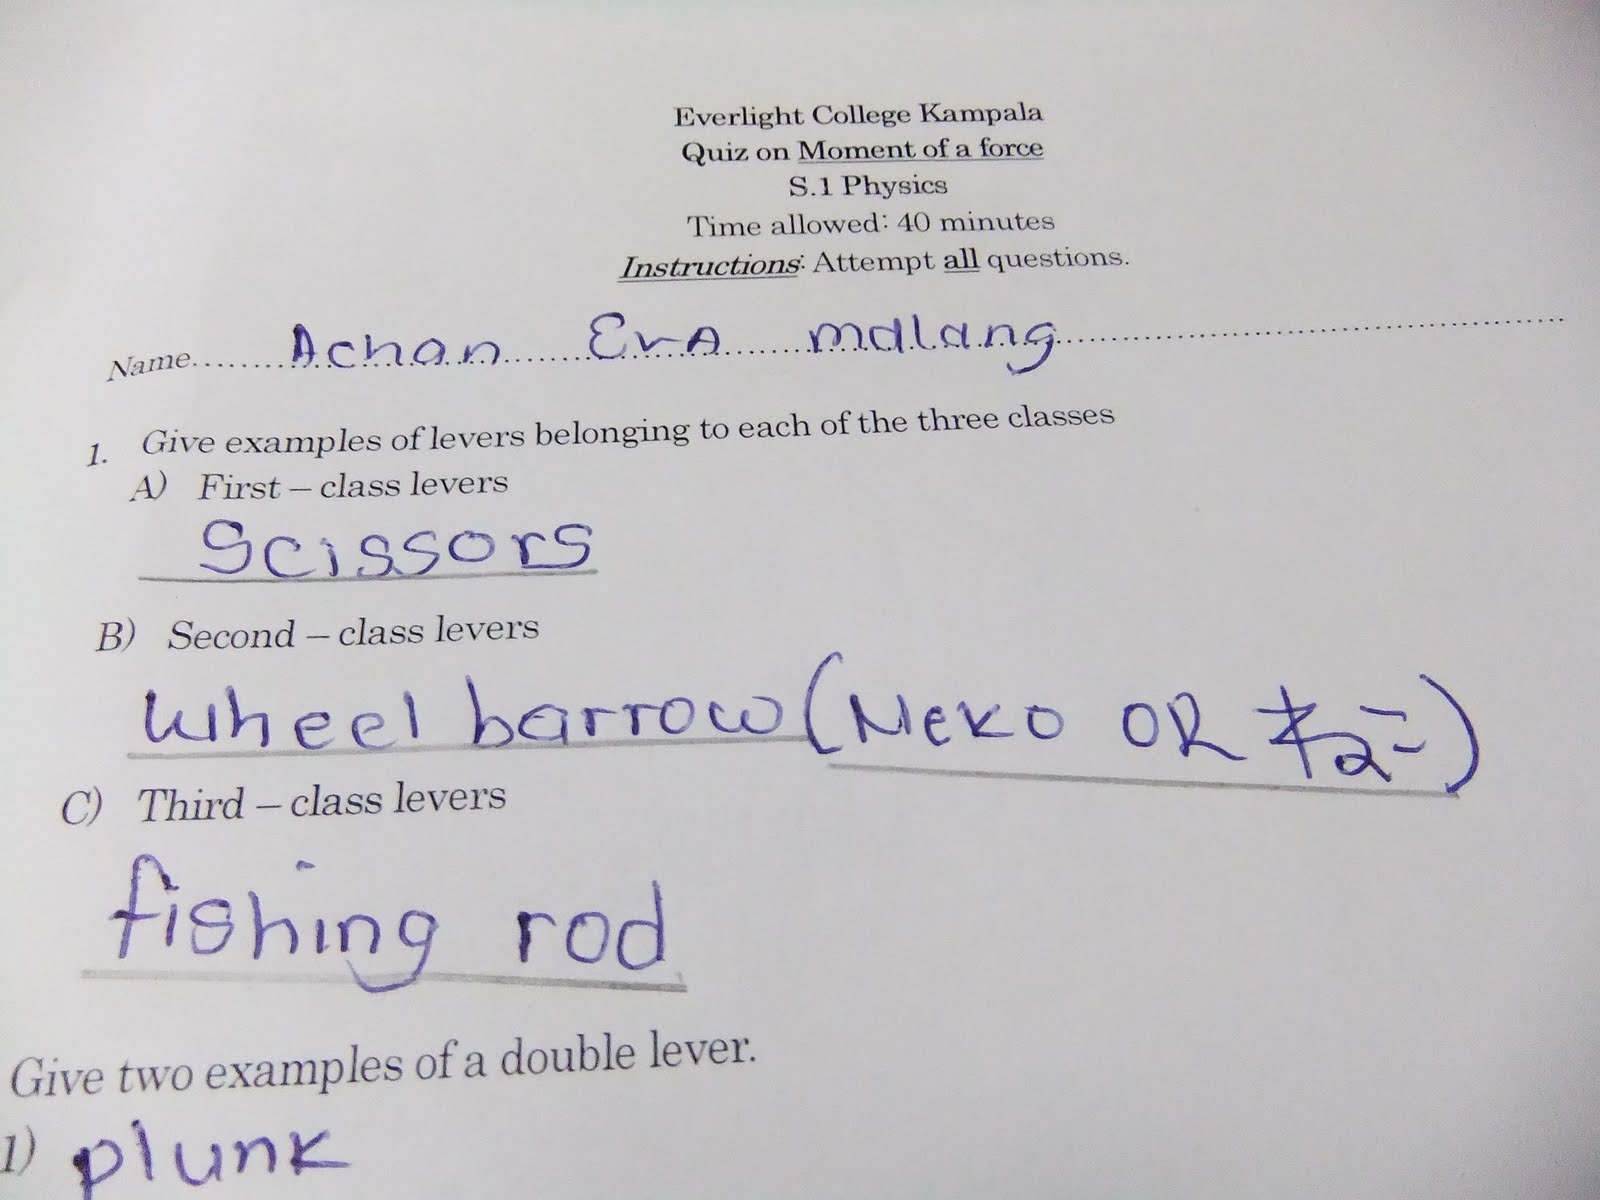 Everlight College Kampala
Quiz on Moment of a force
S.1 Physics
Time allowed: 40 minutes
Instructions: Attempt all questions.
Name......Achan Eva mdlang......
1. Give examples of levers belonging to each of the three classes
A) First – class levers
Scissors
B) Second – class levers
Wheel barrow (Neko OR ネコ)
C) Third – class levers
fishing rod
Give two examples of a double lever.
1) plunk